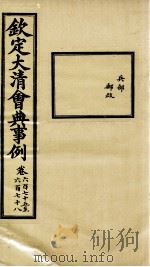 兵部
郵政
欽定大清會典事例
卷六百七十五至
六百七十八